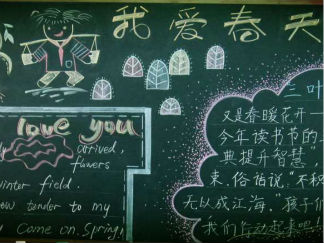 我爱春天
love you
arrived
flowers
winter field
ow tender to my
come on, Spring!
三叶
又是春暖花开一
今年读书节的二
典提升智慧,
束.俗语说,"不积
无以成江海."孩子们
我们行动起来吧!